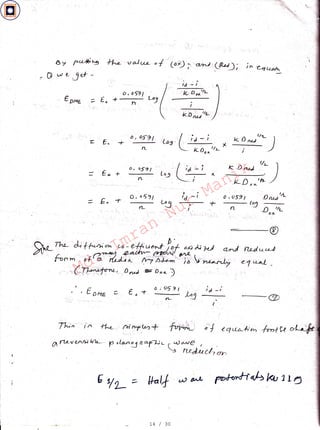 By putting the value of (ox); and (Red); in equation
① we get -
E_DME = E₀ + 0.0591/n Log ( (id - i / K D_ox^1/2) / (i / K D_red^1/2) )
= E₀ + 0.0591/n Log ( id - i / K D_ox^1/2 × K D_red^1/2 / i )
= E₀ + 0.0591/n Log ( id - i / i × K D_red^1/2 / K D_ox^1/2 )
= E₀ + 0.0591/n Log id - i / i + 0.0591/n log D_red^1/2 / D_ox^1/2
⑧
The diffusion co-efficient of oxidised and Reduced
form of a redox system is nearly equal.
(Therefore, D_red = D_ox)
∴ E_DME = E₀ + 0.0591/n Log id - i / i ⑨
This is the simplest form of equation for the
a reversible polarographic wave.
reduction
E 1/2 = Half wave potential
14 / 30